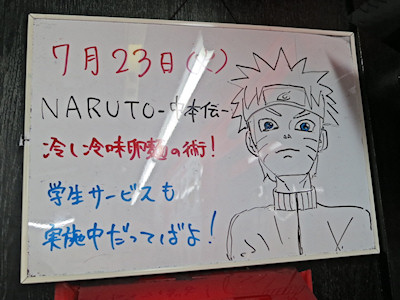 7月23日(火)
NARUTO-中本伝-
冷し冷味卵麺の術!
学生サービスも
実施中だってばよ!